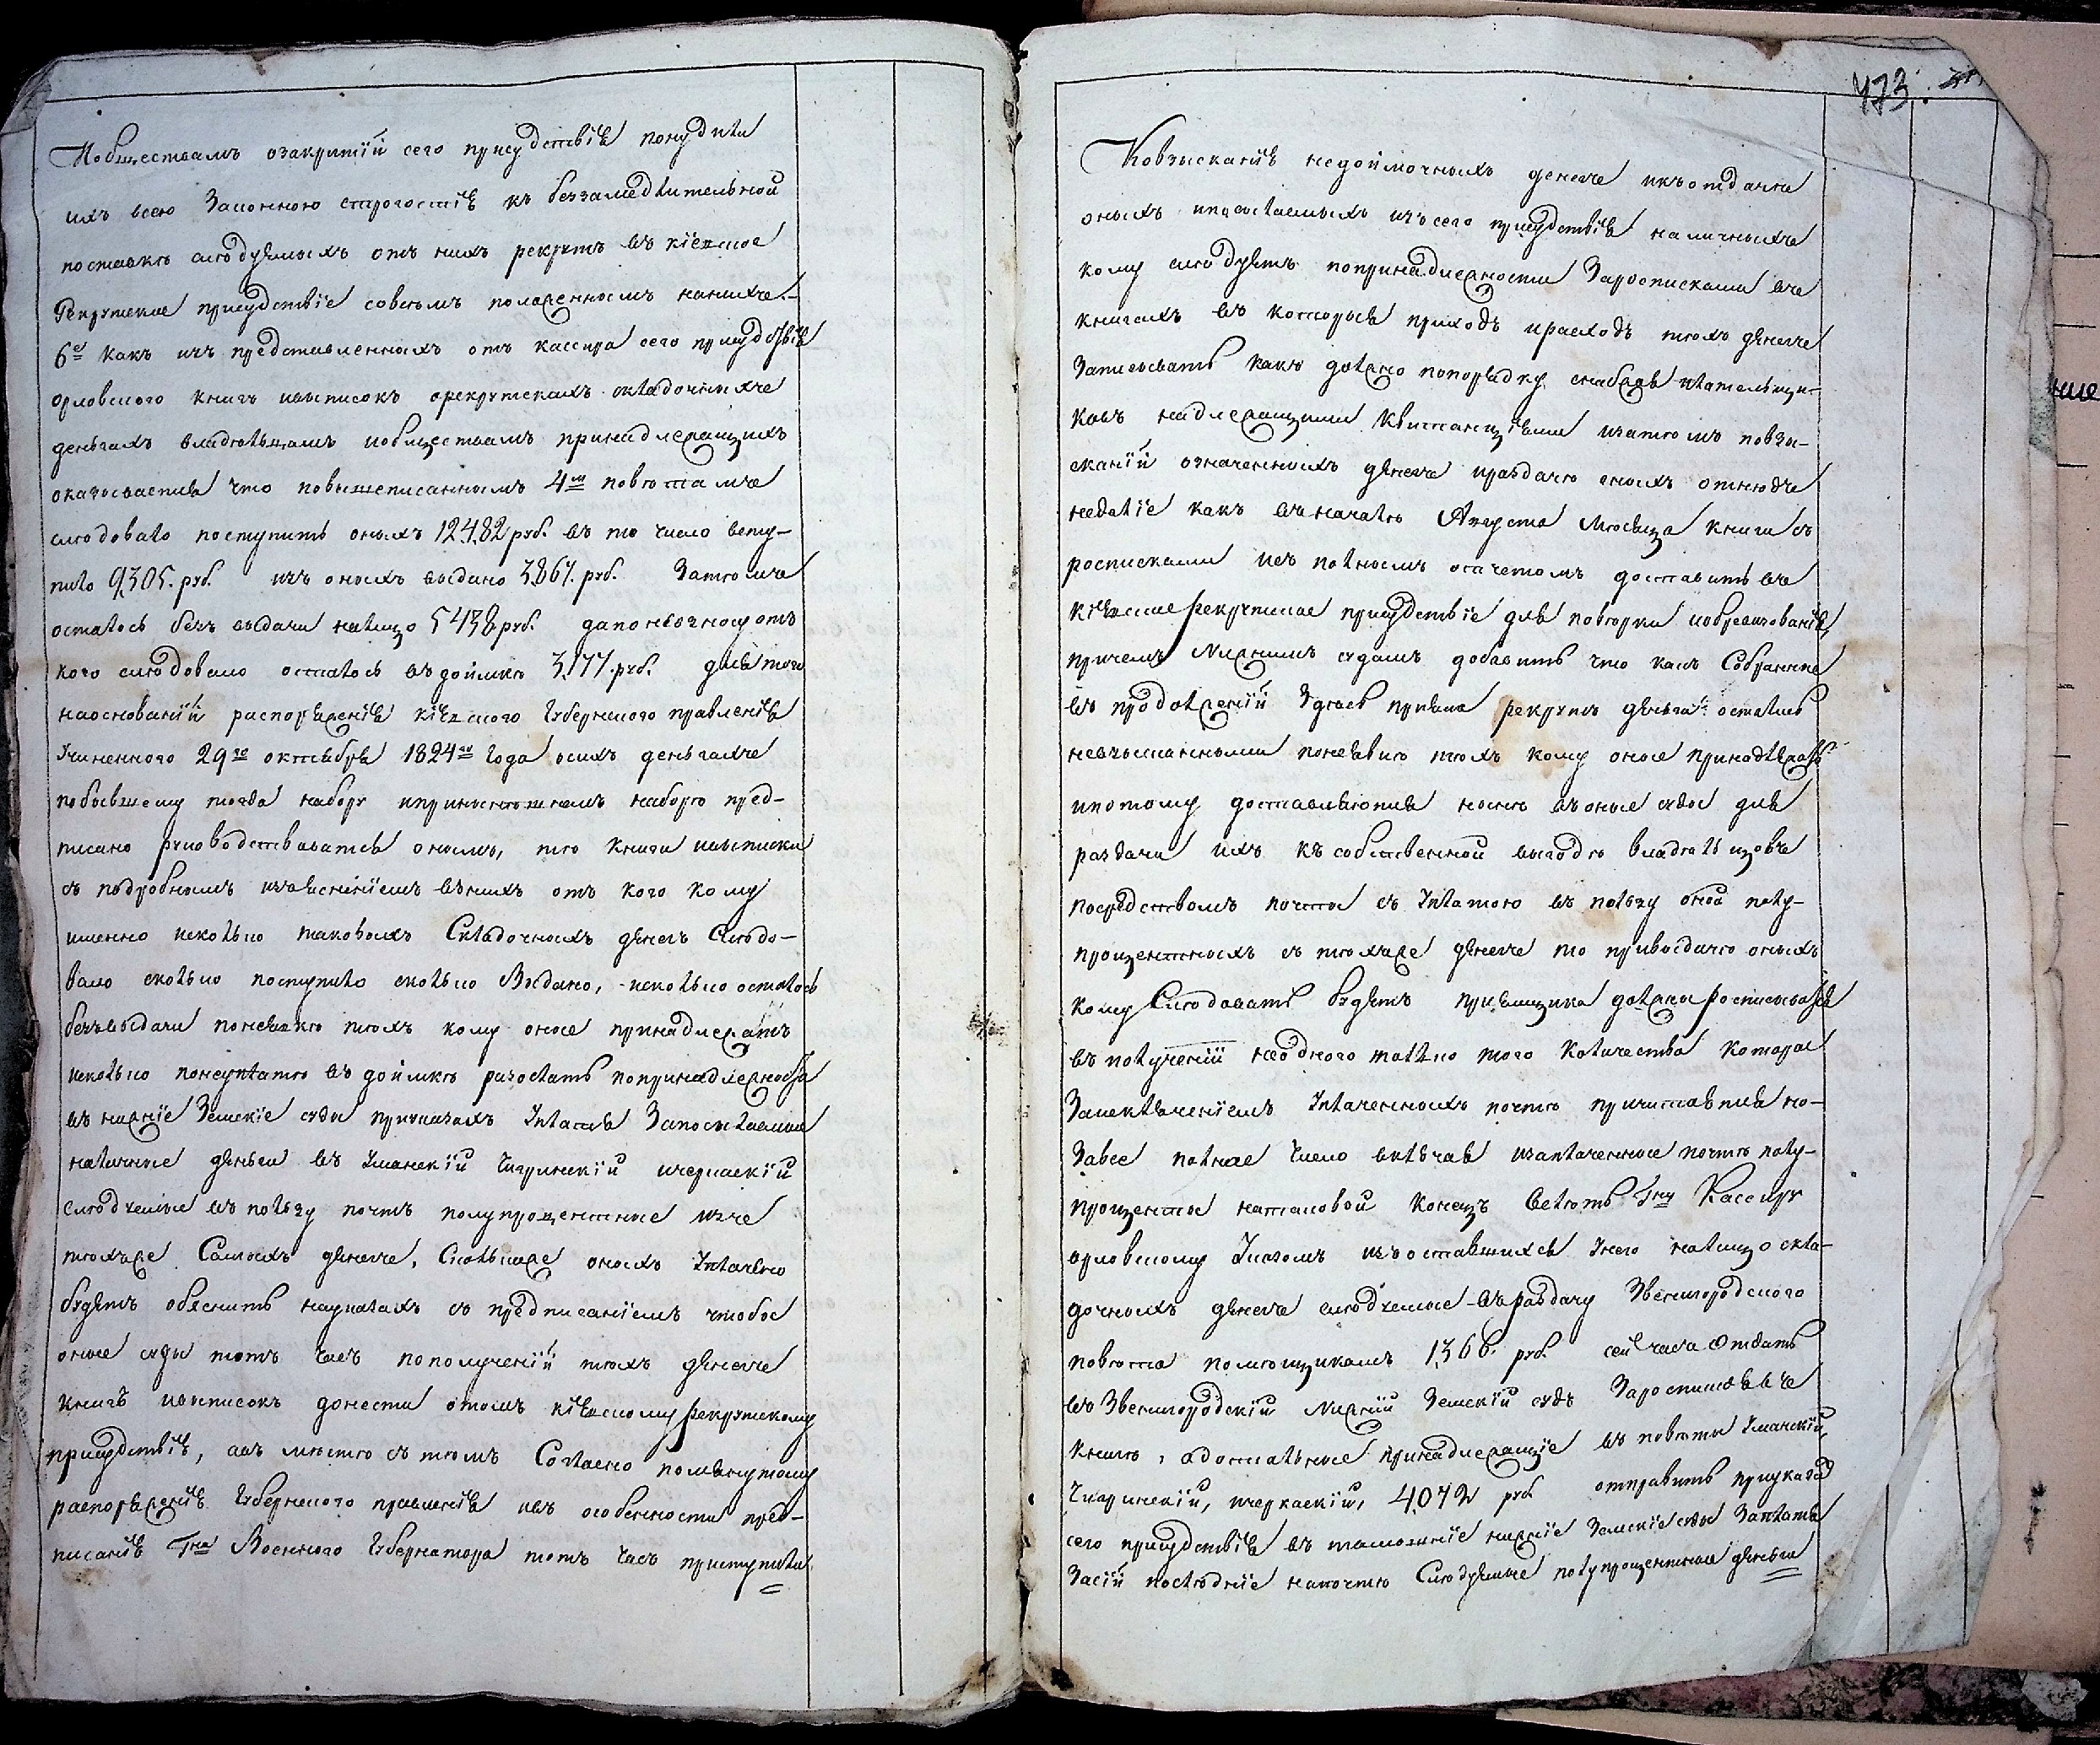 Иобществамъ озакрытіи сего присудствія понудили
ихъ всею Законною строгостію къ беззамедлительной
поставкѣ слѣдуемыхъ отъ нихъ рекрутъ въ кіевское
Рекрутское присудствіе совсѣмъ положеннымъ нанихъ.
6е какъ изъ представленныхъ отъ кассира сего присудствія
орловского книгъ ивыписокъ орекрутскихъ складочныхъ
деньгахъ владѣльцамъ иобществамъ принадлежащихъ
оказывается что повышеписаннымъ 4мъ повѣтамъ
слѣдовало поступить оныхъ 12482 руб. въ то число всту-
пило 9305. руб. изъ оныхъ выдано 3867. руб. Затѣмъ
осталось безъ выдачи налицо 5438 руб. да поневзносу отъ
кого слѣдовало осталось въ доймкѣ 3177. руб. для того
наоснованіи распоряженія кіевского Губернского правленія
Учиненного 29го октября 1824го Года осихъ деньгахъ
побывшему тогда набору ипринынѣшнемъ наборѣ пред-
писано руководствоватся онымъ, то книги ивыписки
съ подробнымъ изъясненіемъ въ нихъ отъ кого кому
именно исколько таковыхъ Складочныхъ денегъ Слѣдо-
вало сколько поступило сколько Выдано, исколько осталось
безъ выдачи понеявкѣ тѣхъ кому оные принадлежатъ
исколько понеуплатѣ въ доймкѣ разослать попринадлежности
въ нижніе Земскіе суды приуказахъ Уплатя Запосылаемыя
наличные деньги въ Уманскій Чигринскій ичеркаскій
слѣдуемые въ пользу почтъ полупроцентные изъ
тѣхъже Самыхъ денегъ, Сколькоже оныхъ Уплачено
будетъ обяснить науказахъ съ предписаніемъ чтобы
оные суды тотъ часъ пополученіи тѣхъ денегъ
книгъ ивыписокъ донести отомъ кіевскому рекрутскому
присудствію, авъ мѣсто съ тѣмъ Согласно помянутому
распоряженію Губернского правленія ивъ особенности пред-
писанія Гна Военного Губернатора тотъ часъ приступили
473.
Ковзысканію недоймочныхъ денегъ икъ отдачи
оныхъ ипосылаемыхъ изъ сего присудствія наличныхъ
кому слѣдуетъ попринадлежности Заросписками въ
книгахъ въ которыя приходъ ирасходъ тѣхъ денегъ
Записывать какъ должно попорядку снабдя платильщи-
ковъ надлежащими Квитанціями изатѣмъ повзы-
сканіи означенныхъ денегъ ираздачѣ оныхъ отнюдъ
недалѣе какъ въ началѣ Августа Мѣсяца книги съ
росписками исъ полнымъ отчетомъ доставить въ
кіевское рекрутское присудствіе для повѣрки иобревизованія,
причемъ Нижнимъ судамъ добавить что какъ Собранные
въ продолженіи Здѣсь пріема рекрутъ деньги остались
невзысканными понеявкѣ тѣхъ кому оные принадлежатъ
ипотому доставляются нынѣ въ оные суды для
раздачи ихъ къ собственной выгодѣ владѣльцовъ
посредствомъ почты съ Уплатою въ пользу оной полу-
процентныхъ съ тѣхъже денегъ то привыдачѣ оныхъ
кому Слѣдовать будетъ пріемщики должны росписыватся
въ полученіи неодного только того Количества которое
Заисключеніемъ Уплаченныхъ почтѣ причитатся но
Завсе полное число включая изаплаченные почтѣ полу-
проценты натаковой конецъ Велѣть Гну Кассиру
орловскому Указомъ изъ оставшихся Унего налицо скла-
дочныхъ денегъ слѣдуемые въ раздачу Звенигородского
повѣта помѣщикамъ 1366. руб. сей часъ Отдать
въ Звенигородскій Нижній Земскій судъ Заросписковъ
книгѣ, адостальные принадлежащіе въ повѣты Уманскій,
Чигринскій, ичеркаскій, 4072 руб отправить приуказѣ
сего присудствія въ тамошніе нижніе Земскіе суды Заплатя
Засій послѣдніе напочтѣ Слѣдуемые полупроцентные деньги